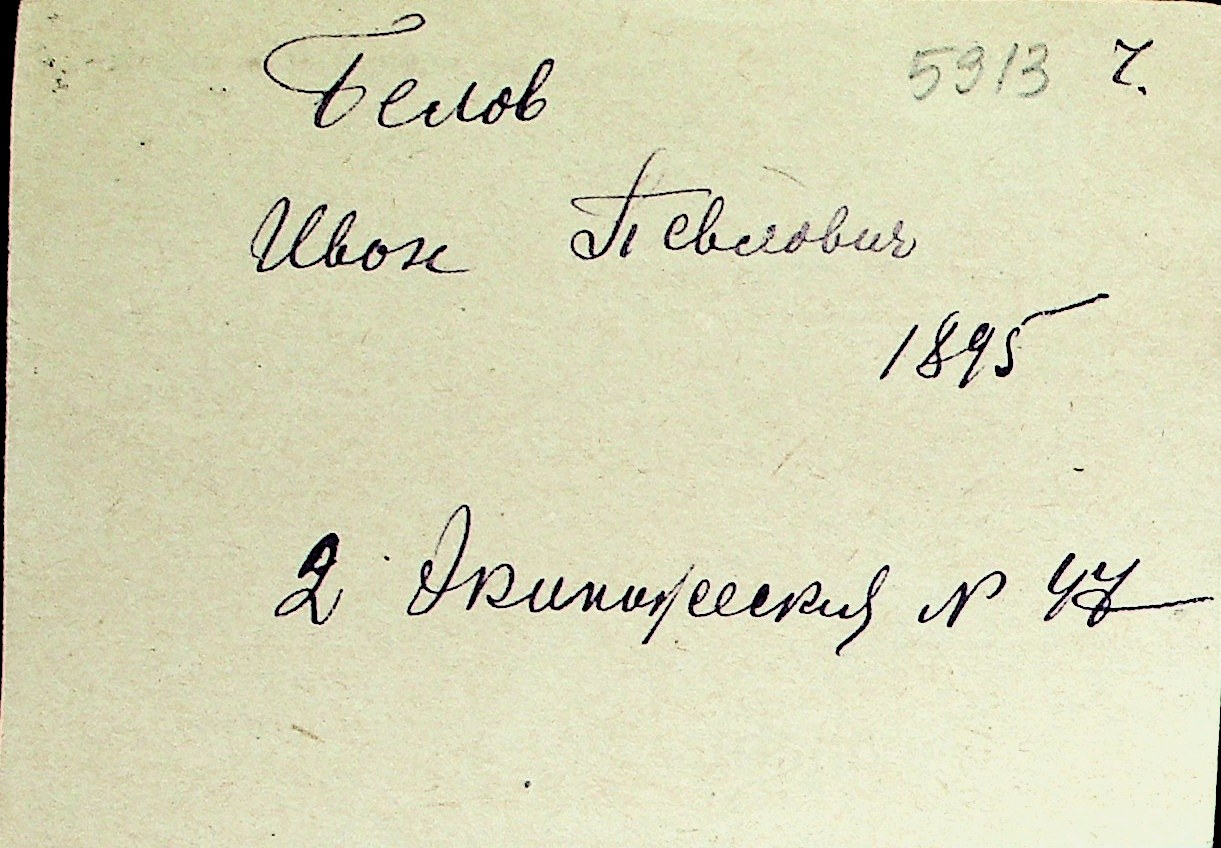 Белов 5913 ч.
Иван Павлович
1895
2 Экипажеский № 47